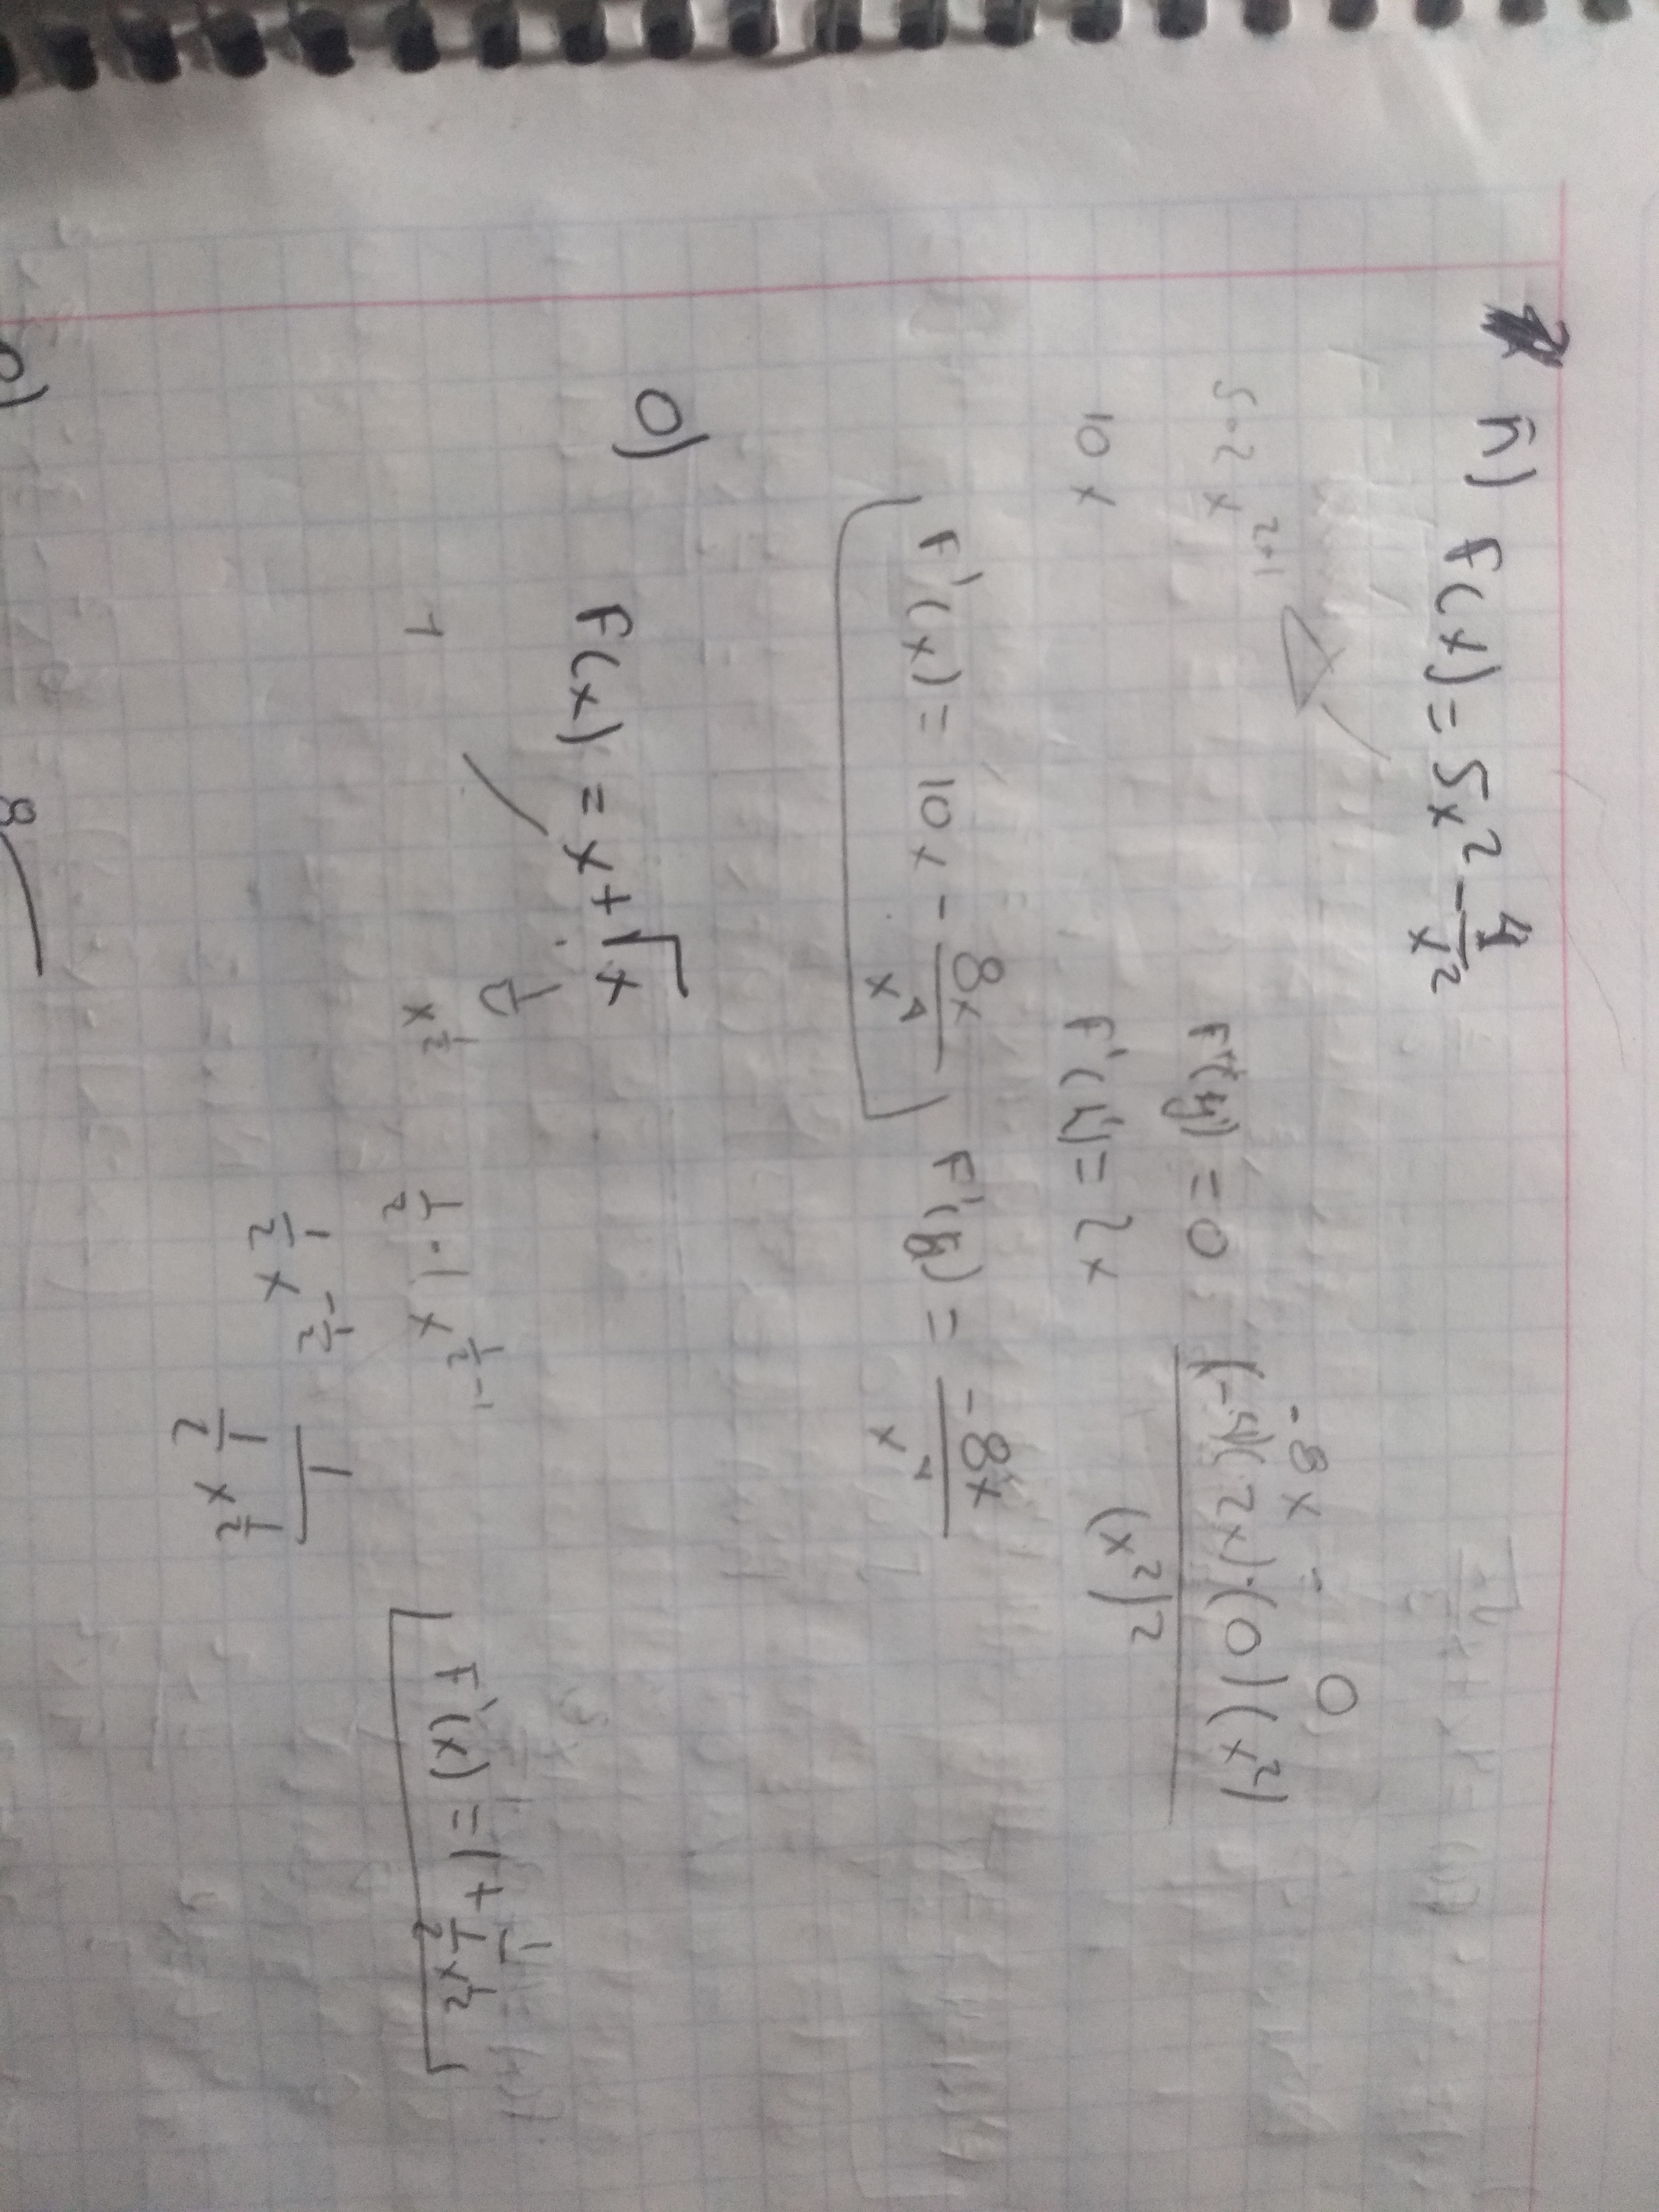 ñ) F(x) = 5x² - 4/x²
5·2x²⁻¹
10x
F'(4) = 0
F'(4) = 2x
-8x - 0
(-4)(2x)·(0)(x²)
(x²)²
F'(x) = 10x - 8x/x⁴
F'(4) = -8x/x⁴
o) F(x) = x + √x
1
x^1/2
1/2 · 1x^1/2-1
1/2 x^-1/2
1
1/2 x^1/2
F'(x) = 1 + 1/(1/2 x^1/2)
8